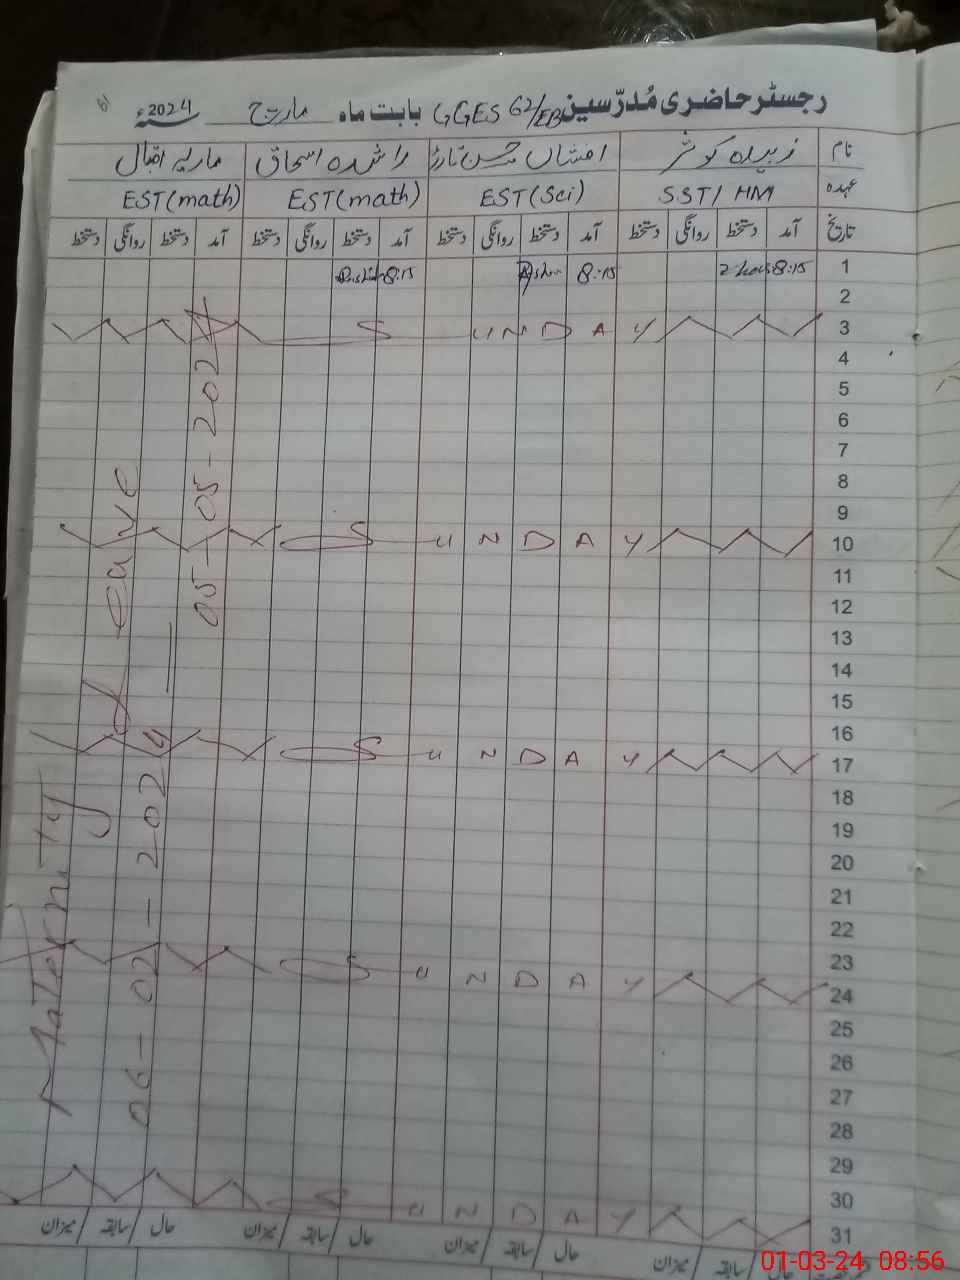 رجسٹر حاضری مُدرّسین GGES 62/EB بابت ماہ مارچ 2024ء
نام زبیدہ کوثر افشاں محسن تارڑ راشدہ اسحاق ماریہ اقبال
عہدہ SST/HM EST(Sci) EST(math) EST(math)
تاریخ آمد دستخط روانگی دستخط آمد دستخط روانگی دستخط آمد دستخط روانگی دستخط آمد دستخط روانگی دستخط
1 8:15 8:15 8:15
2
3 SUNDAY
4
5
6
7
8
9
10 SUNDAY
11
12
13
14
15
16
17 SUNDAY
18
19
20
21
22
23
24 SUNDAY
25
26
27
28
29
30
31 SUNDAY
Maternity Leave
06-02-2024 — 05-05-2024
حال / سابقہ / میزان حال / سابقہ / میزان حال / سابقہ / میزان حال / سابقہ / میزان
01-03-24 08:56